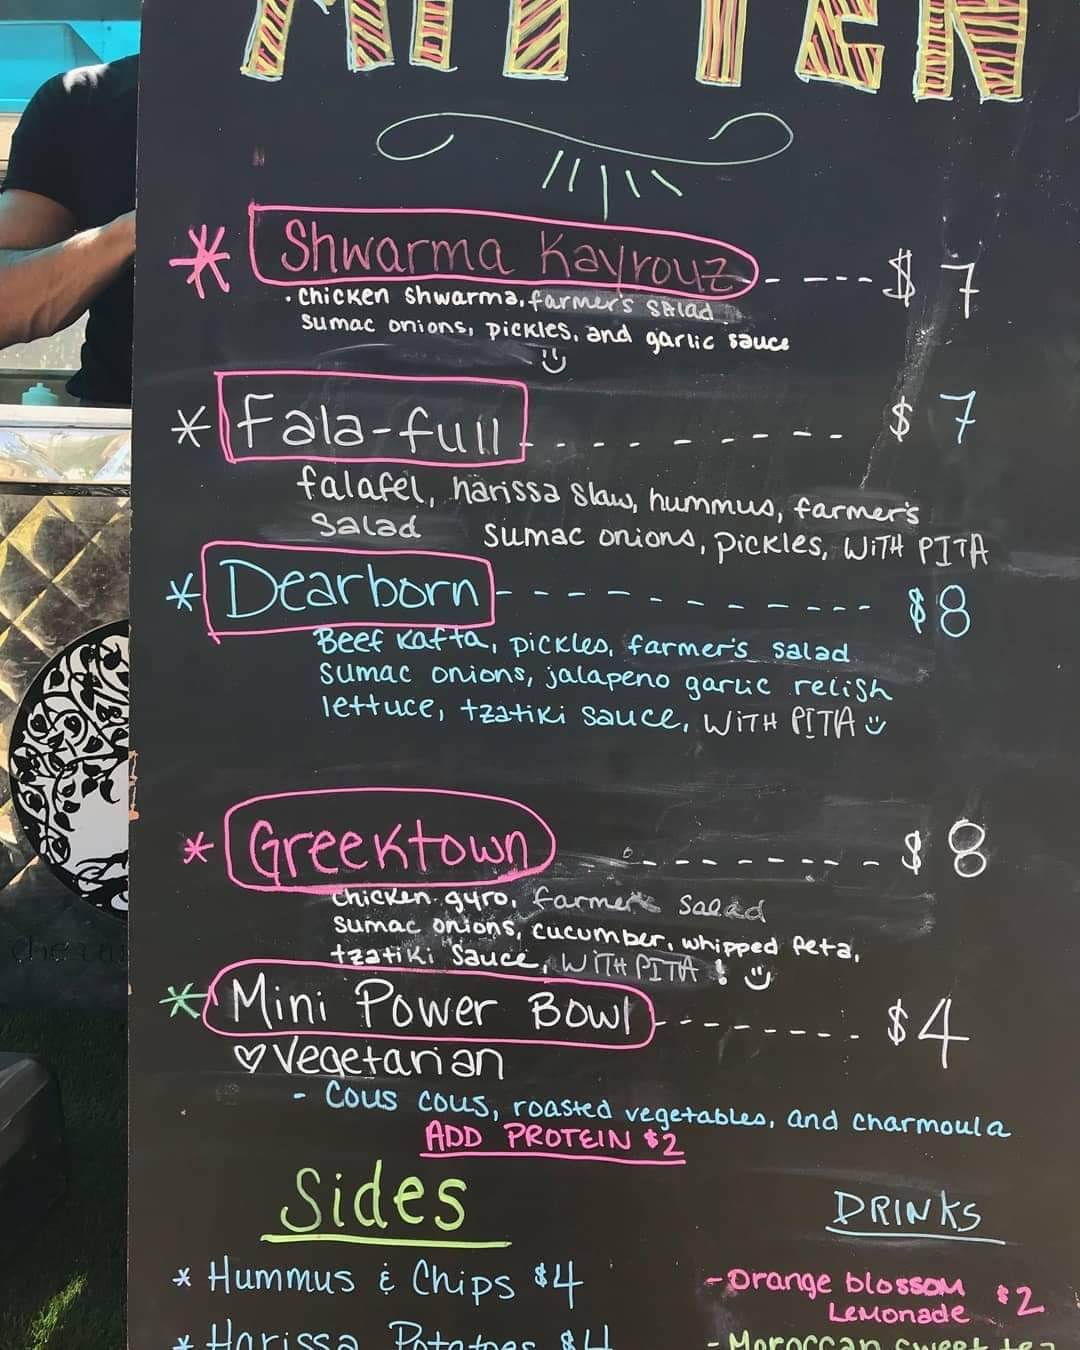 MITTEN
Shwarma Kayrouz - - - - - $ 7
• chicken shwarma, farmer's salad
sumac onions, pickles, and garlic sauce
Fala-full - - - - - - - - - $ 7
falafel, harissa slaw, hummus, farmer's
salad sumac onions, pickles, WITH PITA
Dearborn - - - - - - - - - - - - $8
Beef Kafta, pickles, farmer's salad
sumac onions, jalapeno garlic relish
lettuce, tzatiki sauce, WITH PITA
Greektown - - - - - - - - $ 8
chicken gyro, farmer's salad
sumac onions, cucumber, whipped feta,
tzatiki sauce, WITH PITA !
Mini Power Bowl - - - - - - - - $4
Vegetarian
- Cous cous, roasted vegetables, and charmoula
ADD PROTEIN $2
Sides
* Hummus & Chips $4
* Harissa Potatoes $4
DRINKS
- Orange blossom
Lemonade $2
- Moroccan sweet tea